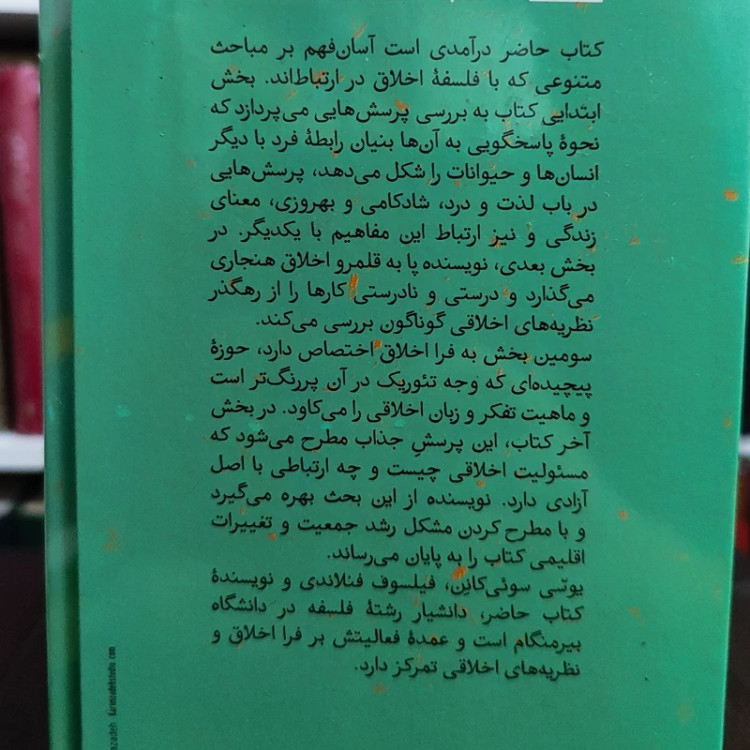 کتاب حاضر درآمدی است آسان‌فهم بر مباحث
متنوعی که با فلسفهٔ اخلاق در ارتباط‌اند. بخش
ابتدایی کتاب به بررسی پرسش‌هایی می‌پردازد که
نحوهٔ پاسخگویی به آن‌ها بنیان رابطهٔ فرد با دیگر
انسان‌ها و حیوانات را شکل می‌دهد، پرسش‌هایی
در باب لذت و درد، شادکامی و بهروزی، معنای
زندگی و نیز ارتباط این مفاهیم با یکدیگر. در
بخش بعدی، نویسنده پا به قلمرو اخلاق هنجاری
می‌گذارد و درستی و نادرستی کارها را از رهگذر
نظریه‌های اخلاقی گوناگون بررسی می‌کند.
سومین بخش به فرا اخلاق اختصاص دارد، حوزهٔ
پیچیده‌ای که وجه تئوریک در آن پررنگ‌تر است
و ماهیت تفکر و زبان اخلاقی را می‌کاود. در بخش
آخر کتاب، این پرسشِ جذاب مطرح می‌شود که
مسئولیت اخلاقی چیست و چه ارتباطی با اصل
آزادی دارد. نویسنده از این بحث بهره می‌گیرد
و با مطرح کردن مشکل رشد جمعیت و تغییرات
اقلیمی کتاب را به پایان می‌رساند.
یوسّی سوئی‌کانِن، فیلسوف فنلاندی و نویسندهٔ
کتاب حاضر، دانشیار رشتهٔ فلسفه در دانشگاه
بیرمنگام است و عمدهٔ فعالیتش بر فرا اخلاق و
نظریه‌های اخلاقی تمرکز دارد.
karimzadehstudio.com